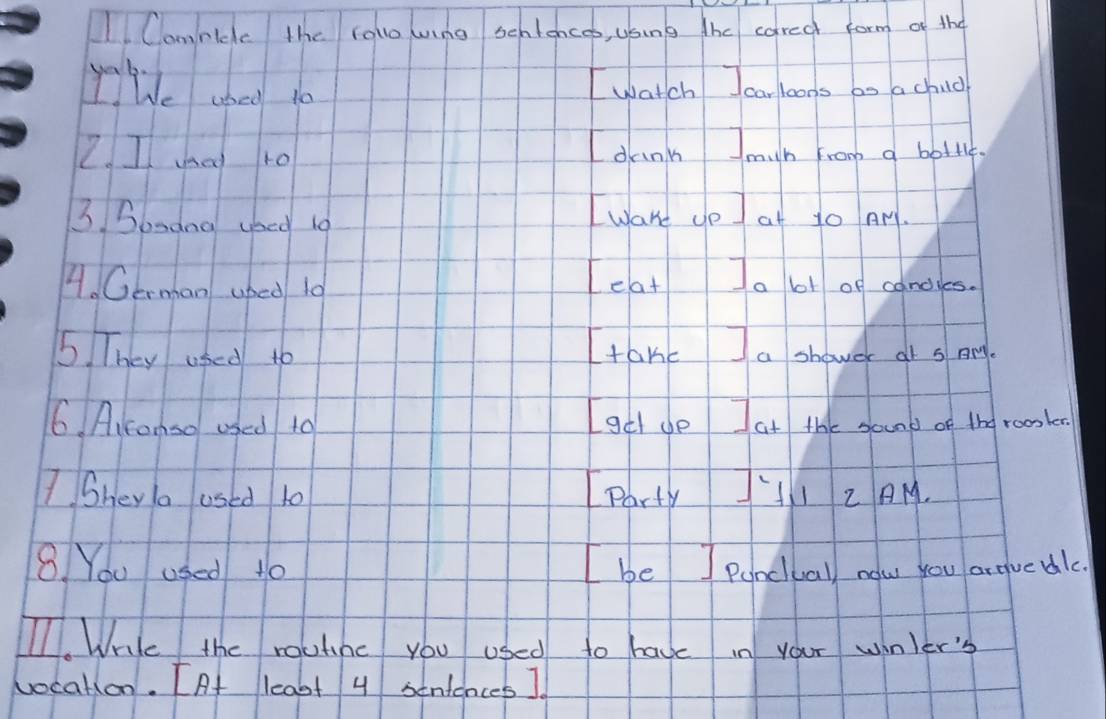 I. Complete the following sentences, using the correct form of the
verb.
1. We used to [watch] cartoons as a child
2. I used to [drink] milk from a bottle.
3. Sosana used to [Wake up] at 10 AM.
4. German used to [eat] a lot of candies.
5. They used to [take] a shower at 5 AM.
6. Alfonso used to [get up] at the sound of the rooster.
7. Sheyla used to [Party] 'till 2 AM.
8. You used to [be] Punctual, now you arrive late.
II. Write the routine you used to have in your winter's
vacation. [At least 4 sentences].